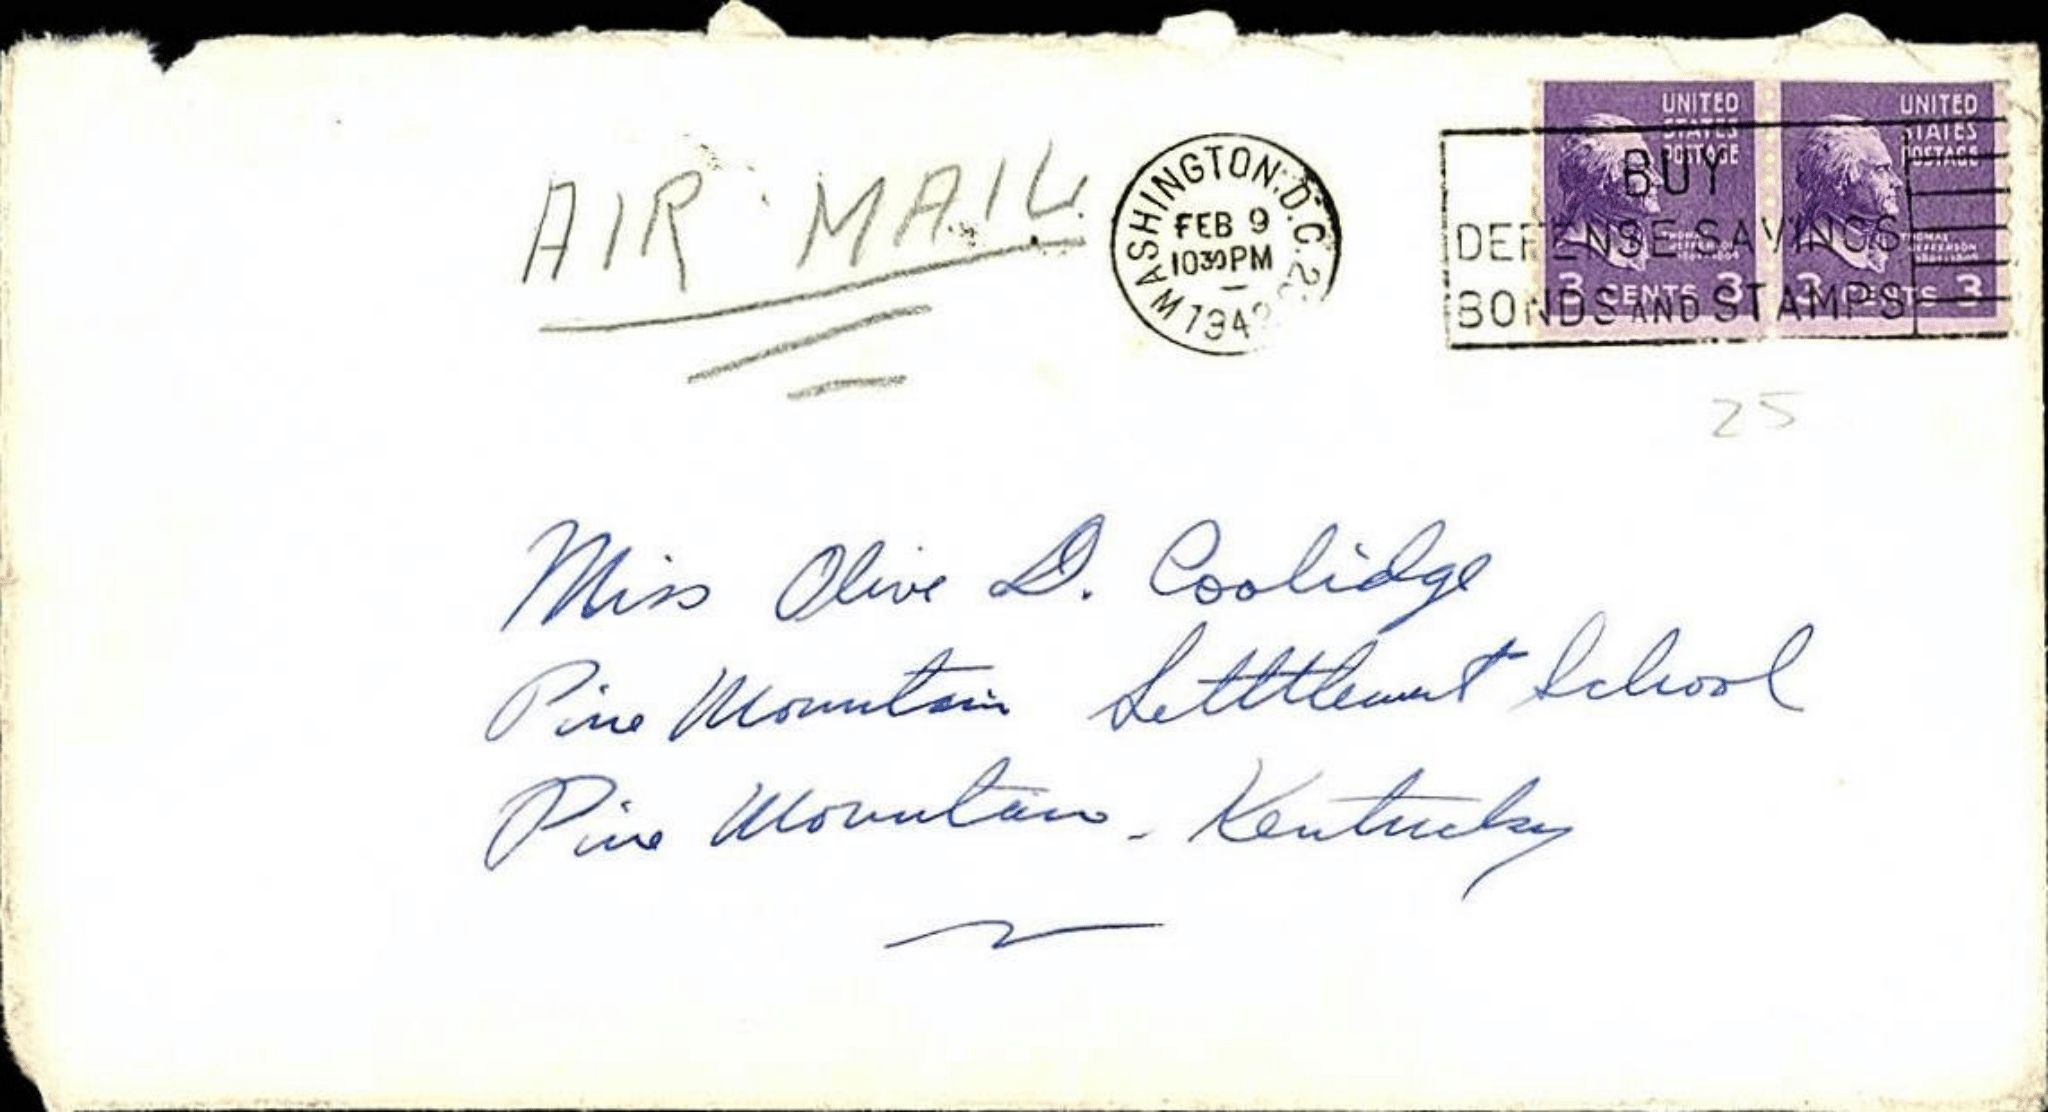 AIR MAIL
WASHINGTON, D.C.
FEB 9
1030 PM
1942
BUY
DEFENSE SAVINGS
BONDS AND STAMPS
UNITED STATES POSTAGE
THOMAS JEFFERSON
3 CENTS 3
UNITED STATES POSTAGE
THOMAS JEFFERSON
3 CENTS 3
25
Miss Olive D. Coolidge
Pine Mountain Setttlement School
Pine Mountain - Kentucky